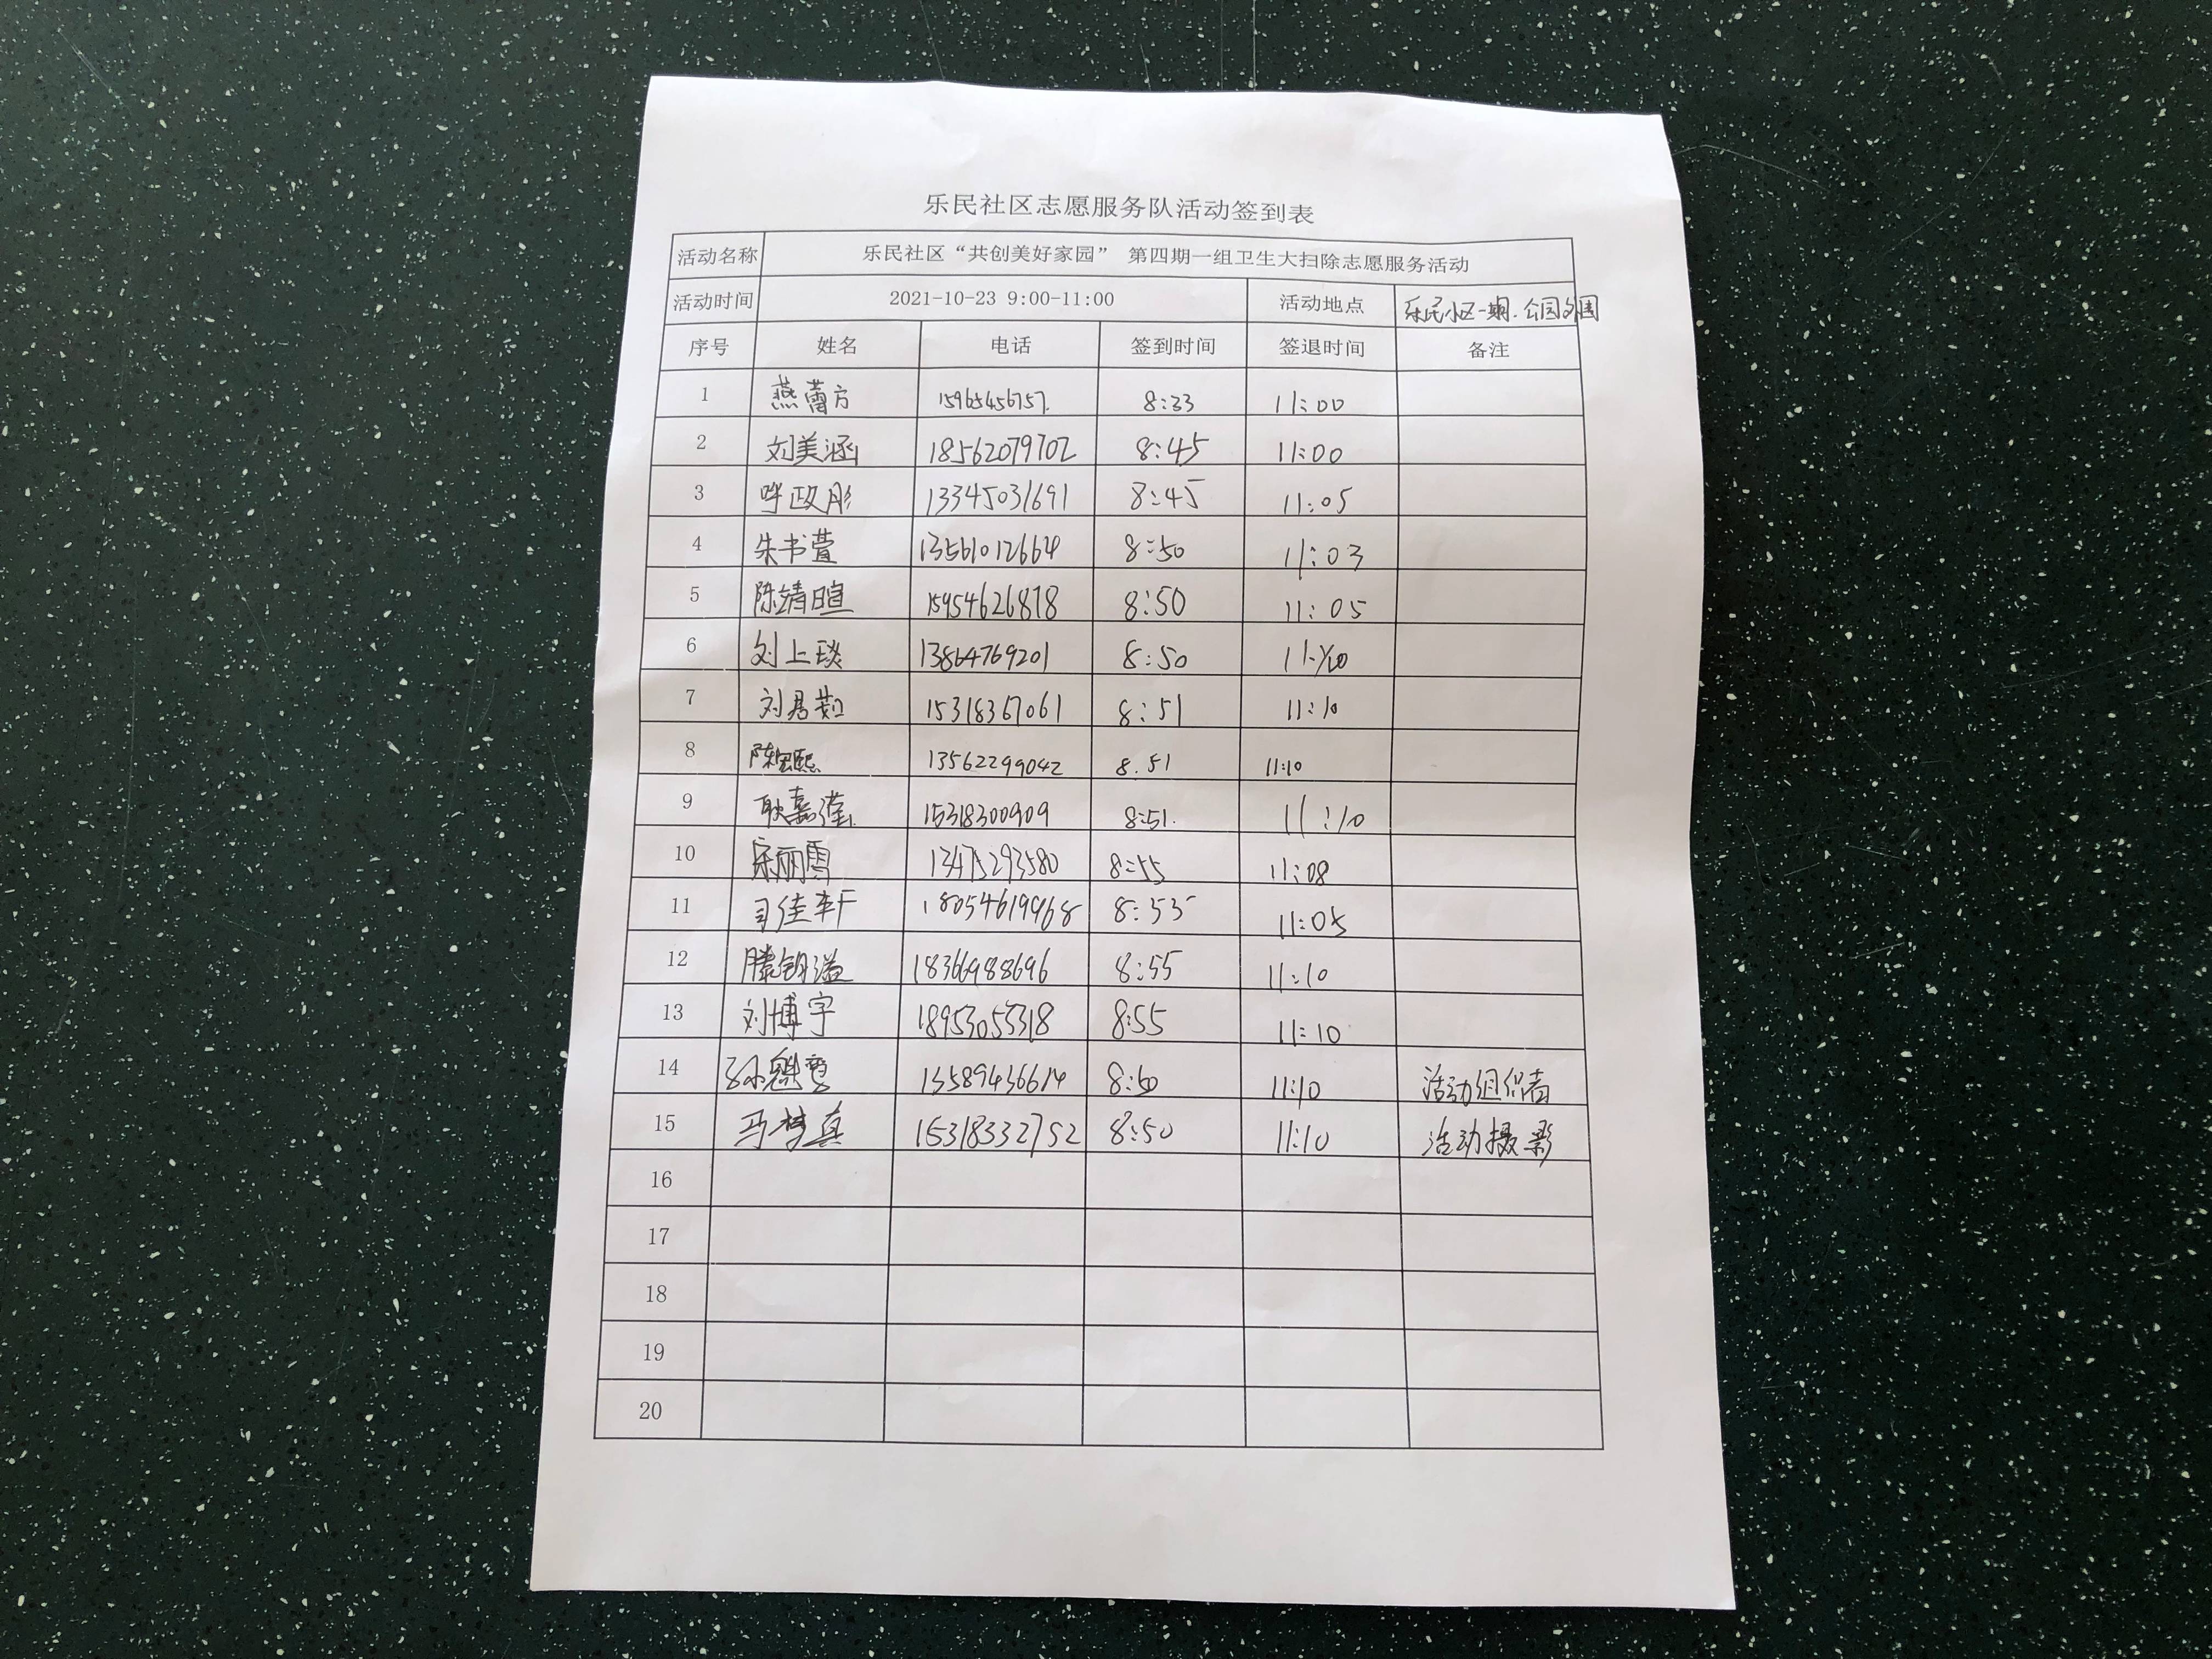 乐民社区志愿服务队活动签到表
活动名称 乐民社区“共创美好家园” 第四期一组卫生大扫除志愿服务活动
活动时间 2021-10-23 9:00-11:00 活动地点 乐民小区一期.公园外围
序号 姓名 电话 签到时间 签退时间 备注
1 燕蕾方 15965456757. 8:33 11:00
2 刘美涵 18562079702 8:45 11:00
3 呼政彤 13345031691 8:45 11:05
4 朱书萱 13561012664 8:50 11:03
5 陈靖暄 15954626818 8:50 11:05
6 刘上琰 13864769201 8:50
7 刘君茹 15318367061 8:51 11:10
8 13562299042 8.51 11:10
9 耿嘉滢 15318300909 8:51. 11:10
10 宋丽雪 13475293580 8:55 11:08
11 司佳轩 18054619968 8:55 11:05
12 18366988696 8:55 11:10
13 刘博宇 18953055318 8:55 11:10
14 13589436614 8:50 11:10 活动组织者
15 马梦真 15318332752 8:50 11:10 活动摄影
16
17
18
19
20